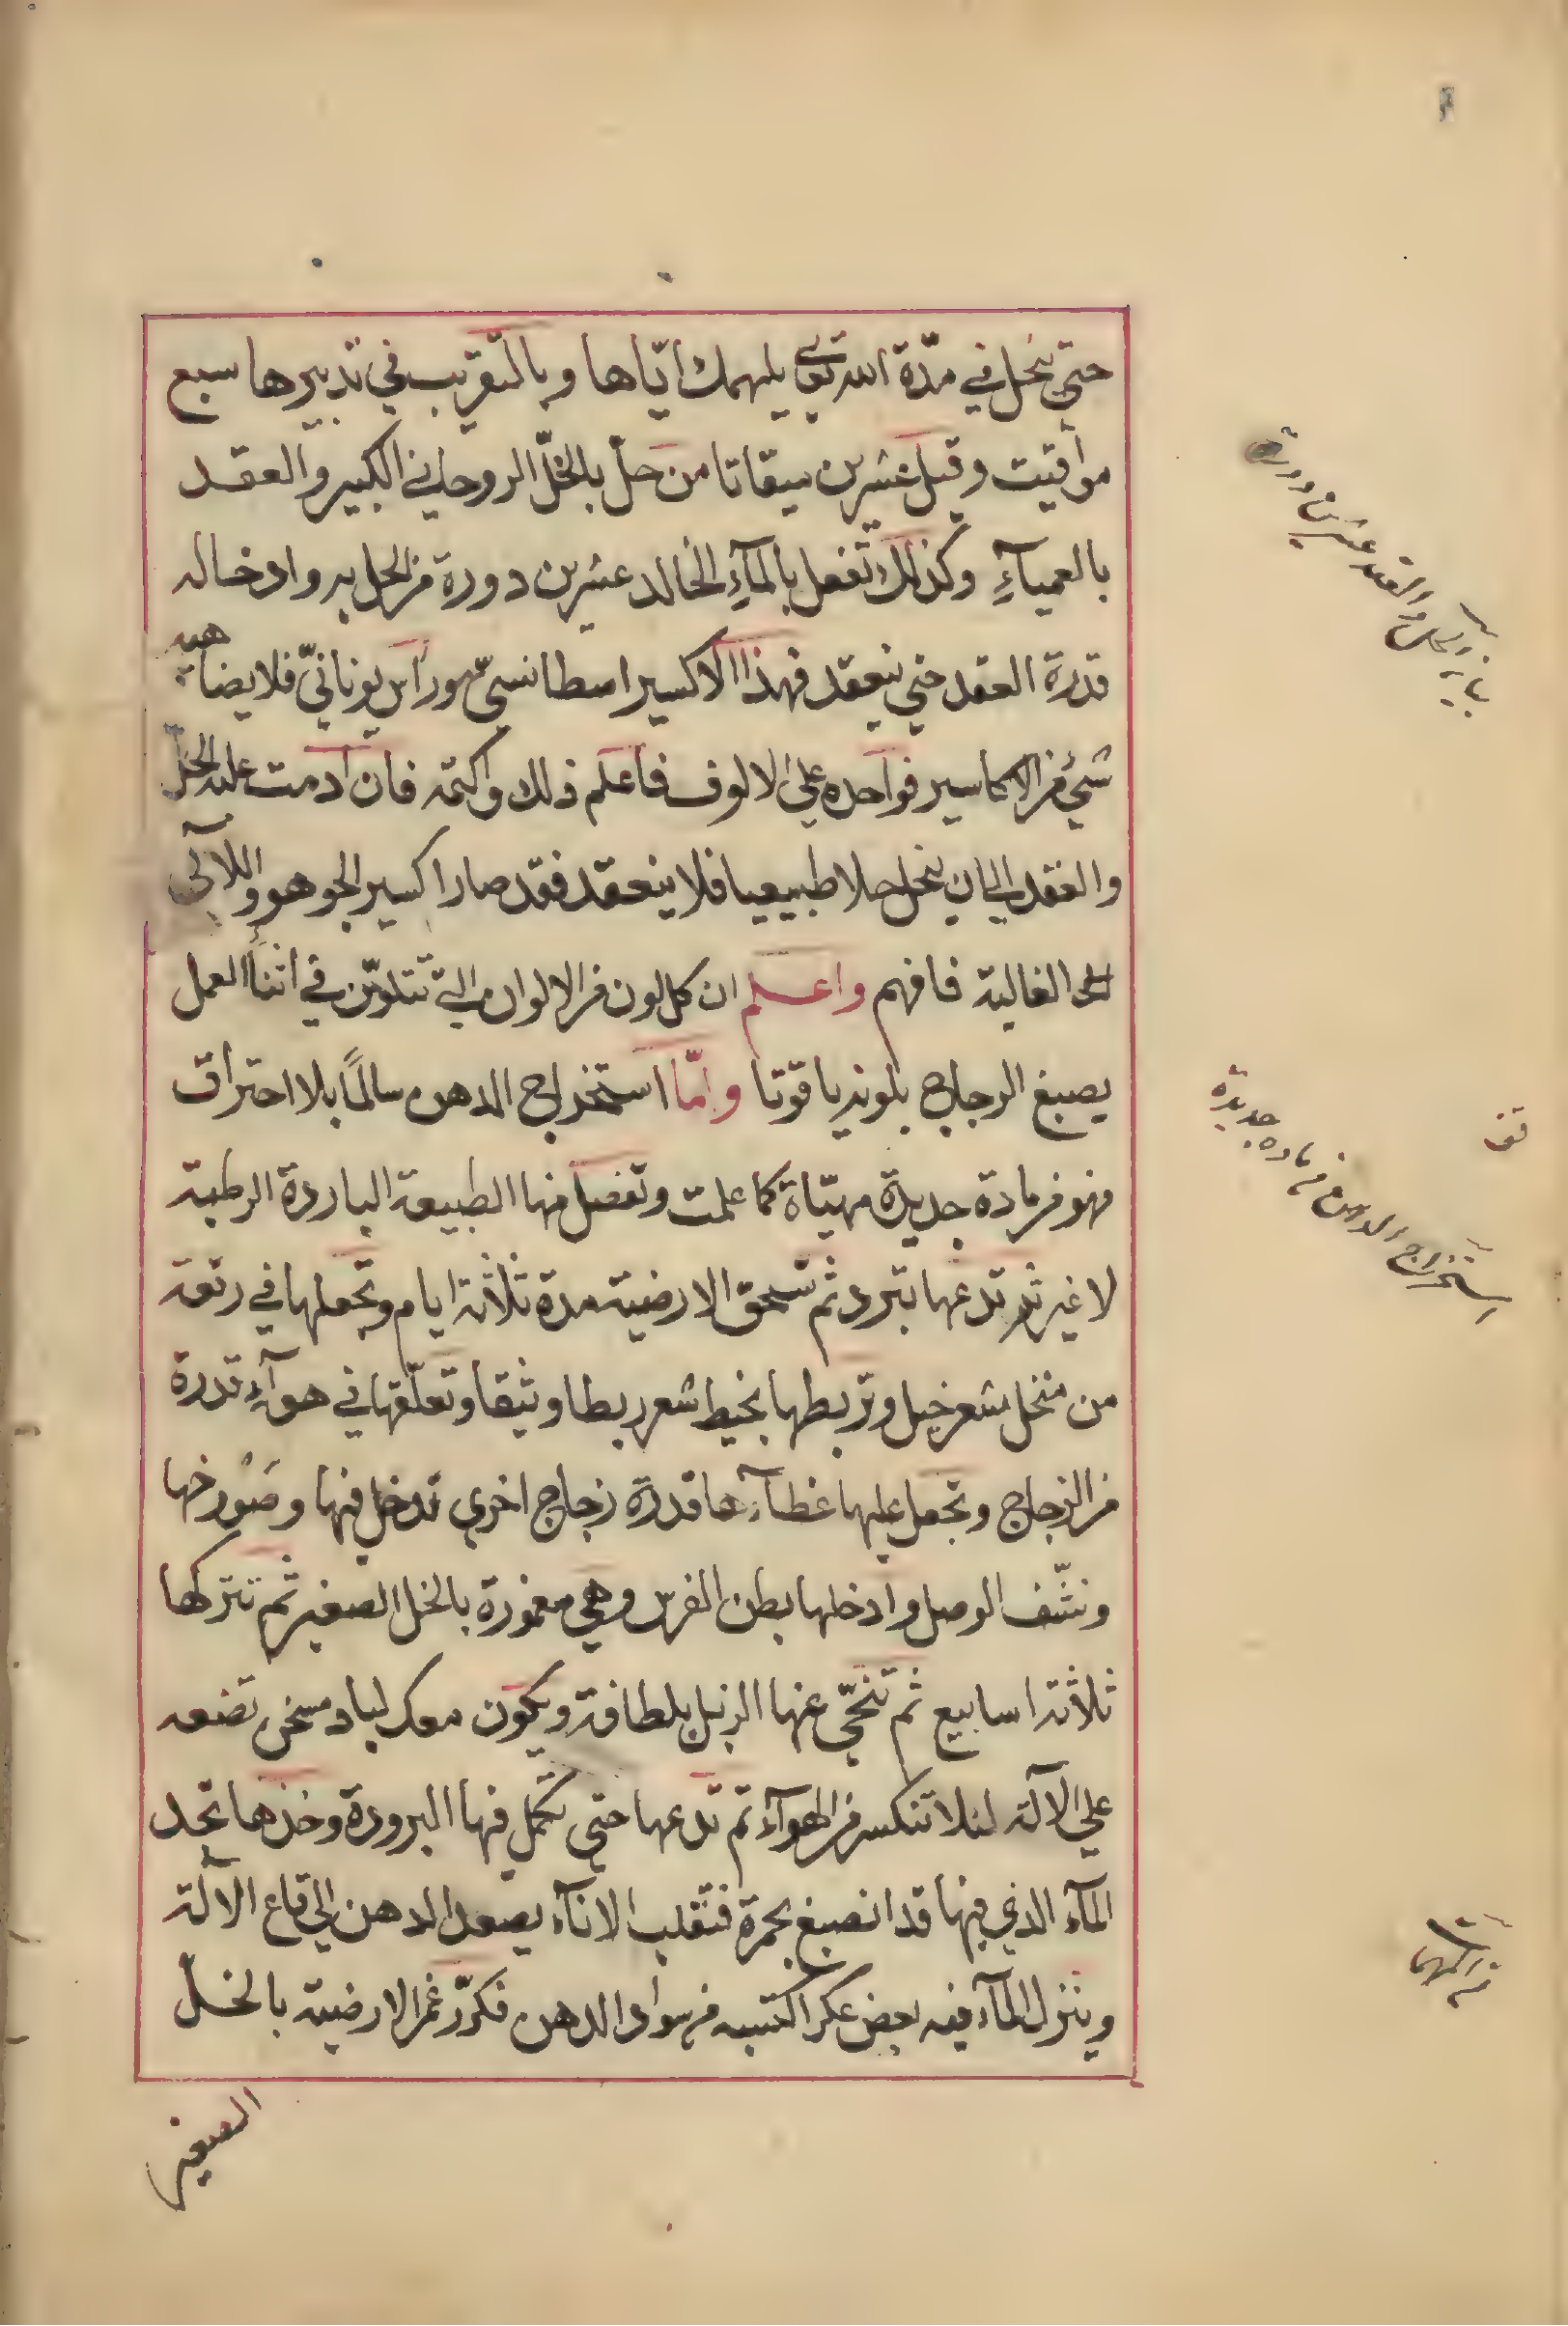 حتي ينحل في مدّة الله تعالى يلهمك ايّاها وبالتّقريب في تدبيرها سبع
مواقيت وقيل عشرين ميقاتا من حلّ بالخلّ الروحاني الكبير والعقد
بالعمياءِ وكذلك تفعل بالمآءِ الخالد عشرين دورة من الحل به وادخاله
قدرة العقد حتي ينعقد فهذا الاكسير اسطانسيّ هوراس يونانيّ فلا يضاهيه
شيُ من الاكاسير فواحده علي الالوف فاعلم ذلك واكتمه فان ادمت عليه الحلّ
والعقد الي ان ينحل حلا طبيعيا فلا ينعقد فقد صار اكسير الجوهر واللآلي
الغالية فافهم واعلم ان كل لون من الالوان التي تتلوّن في اثناء العمل
يصبغ الزجاج بلونه ياقوتا وامّا استخراج الدهن سالمًا بلا احتراق
فهو من مادة جديدة مهيّاة كما علمت وتفصل منها الطبيعة الباردة الرطبة
لا غير ثم تدعها تبرد ثم تسحق الارضية مدة ثلاثة ايام وتجعلها في رقعة
من منخل شعر خيل وتربطها بخيط شعر ربطا وثيقا وتعلّقها في هوآءِ قدرة
من الزجاج وتجعل عليها غطآءها قدرة زجاج اخري تدخل فيها وصورتها
ونشّف الوصل وادخلها بطن الفرس وهي مغمورة بالخل الصغير ثم تتركها
ثلاثة اسابيع ثم تنحّي عنها الزبل بلطافة ويكون معك لباد مسخن تضعه
علي الآلة لئلا تنكسر من الهوآء ثم تدعها حتي تكمل فيها البرودة وخذها تجد
المآء الذي فيها قد انصبغ بحمرة فتقلب الانآء يصعد الدهن الي قاع الآلة
وينزل المآء فيه بعض عكر اكتسبه من سواد الدهن فكرّر غمر الارضية بالخلّ
الصغير
الحل والعقد عشرين دورة
قف
استخراج الدهن من مادة جديدة